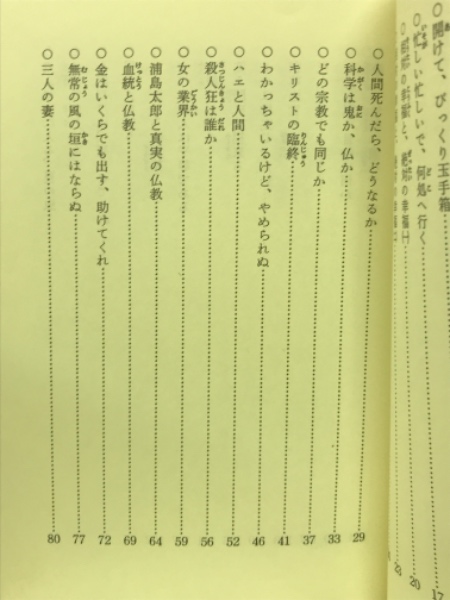 ○開けて、びっくり玉手箱……17
○忙しい忙しいで、何処へ行く……20
絶対の幸福㈠……23
○人間死んだら、どうなるか……29
○科学は鬼か、仏か……33
○どの宗教でも同じか……37
○キリストの臨終……41
○わかっちゃいるけど、やめられぬ……46
○ハエと人間……52
○殺人狂は誰か……56
○女の業界……59
○浦島太郎と真実の仏教……64
○血統と仏教……69
○金はいくらでも出す、助けてくれ……72
○無常の風の垣にはならぬ……77
○三人の妻……80